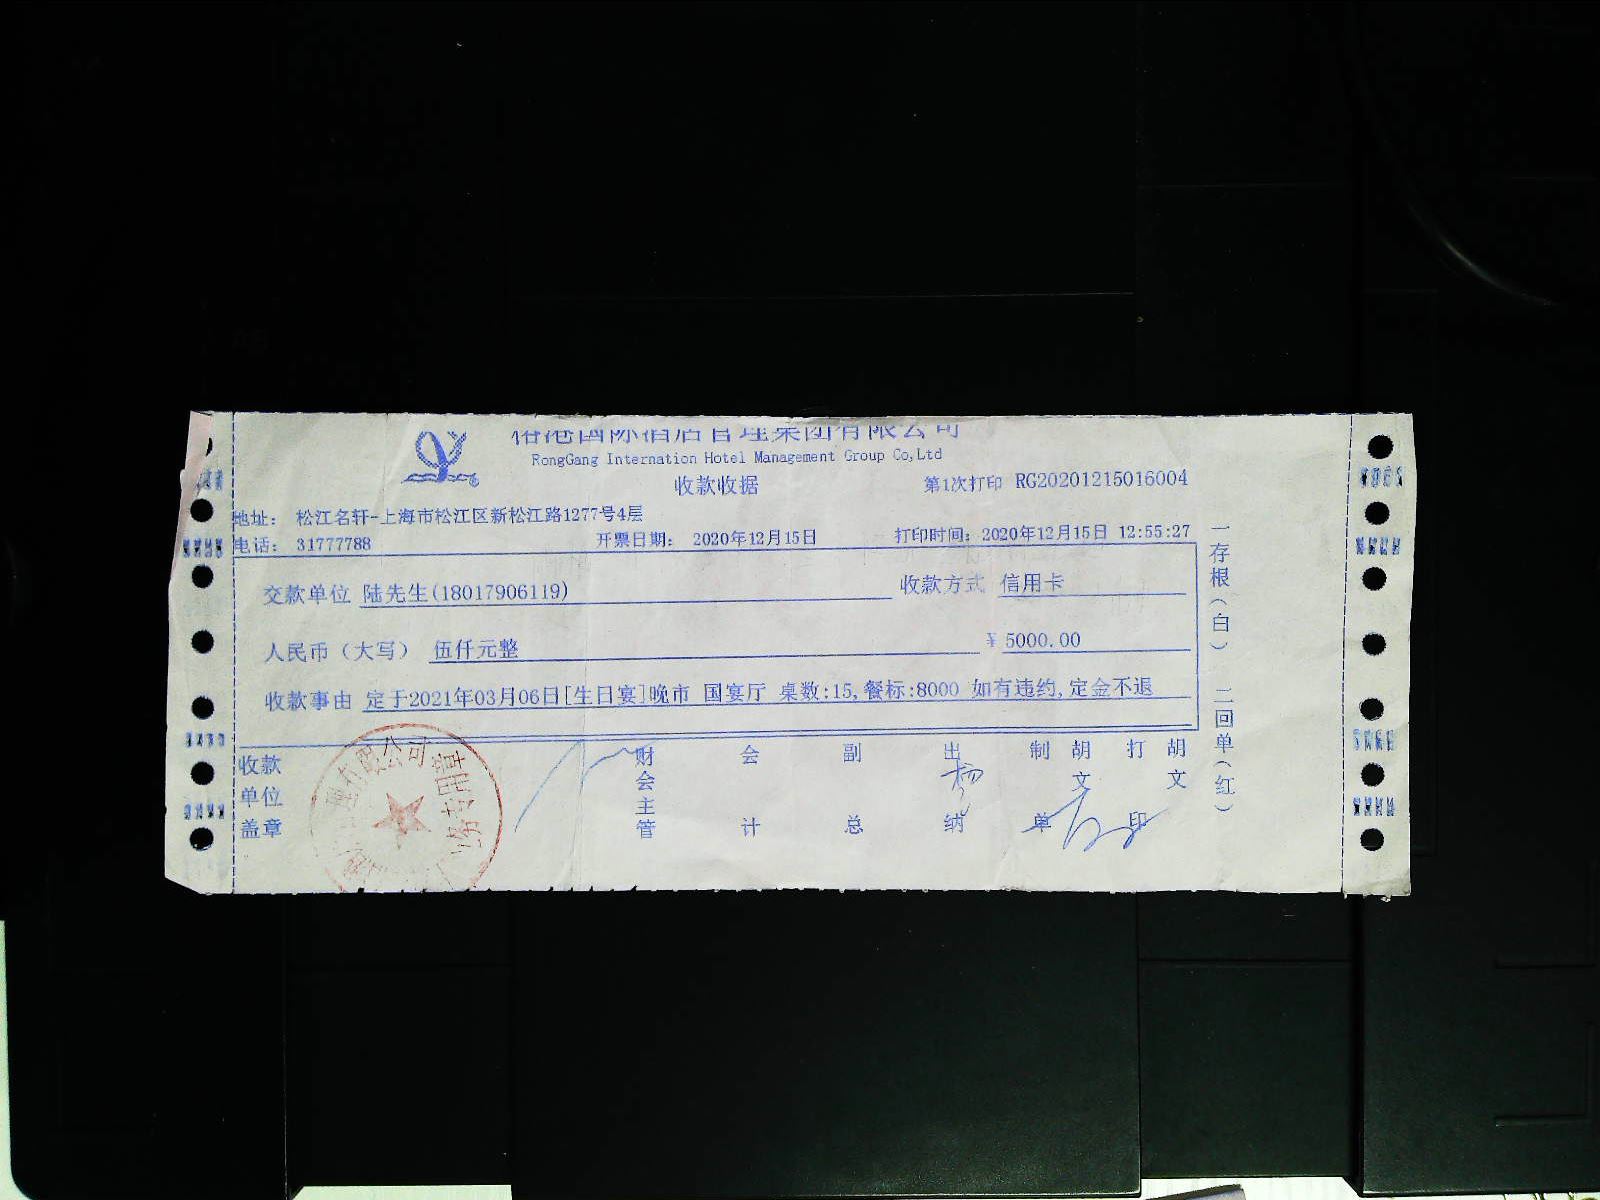 榕港国际酒店管理集团有限公司
RongGang Internation Hotel Management Group Co,Ltd
收款收据
第1次打印 RG20201215016004
地址： 松江名轩-上海市松江区新松江路1277号4层
电话： 31777788 开票日期： 2020年12月15日 打印时间：2020年12月15日 12:55:27
交款单位 陆先生(18017906119) 收款方式 信用卡
人民币（大写） 伍仟元整 ¥ 5000.00
收款事由 定于2021年03月06日[生日宴]晚市 国宴厅 桌数:15,餐标:8000 如有违约,定金不退
收款单位盖章 财会主管 会计 副总 出纳 杨 制单 胡文 打印 胡文
有限公司
业务专用章
一存根（白） 二回单（红）